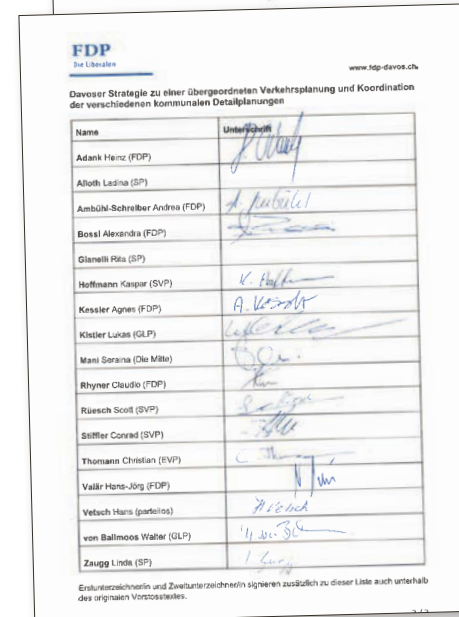 FDP
Die Liberalen
www.fdp-davos.ch
Davoser Strategie zu einer übergeordneten Verkehrsplanung und Koordination
der verschiedenen kommunalen Detailplanungen
Name Unterschrift
Adank Heinz (FDP)
Alloth Ladina (SP)
Ambühl-Schreiber Andrea (FDP) A. Ambühl
Bossi Alexandra (FDP)
Gianelli Rita (SP)
Hoffmann Kaspar (SVP) K. Hoffmann
Kessler Agnes (FDP) A. Kessler
Kistler Lukas (GLP)
Mani Seraina (Die Mitte)
Rhyner Claudio (FDP)
Rüesch Scott (SVP)
Stiffler Conrad (SVP)
Thomann Christian (EVP)
Valär Hans-Jörg (FDP)
Vetsch Hans (parteilos) H Vetsch
von Ballmoos Walter (GLP)
Zaugg Linda (SP)
Erstunterzeichner/in und Zweitunterzeichner/in signieren zusätzlich zu dieser Liste auch unterhalb
des originalen Vorstosstextes.